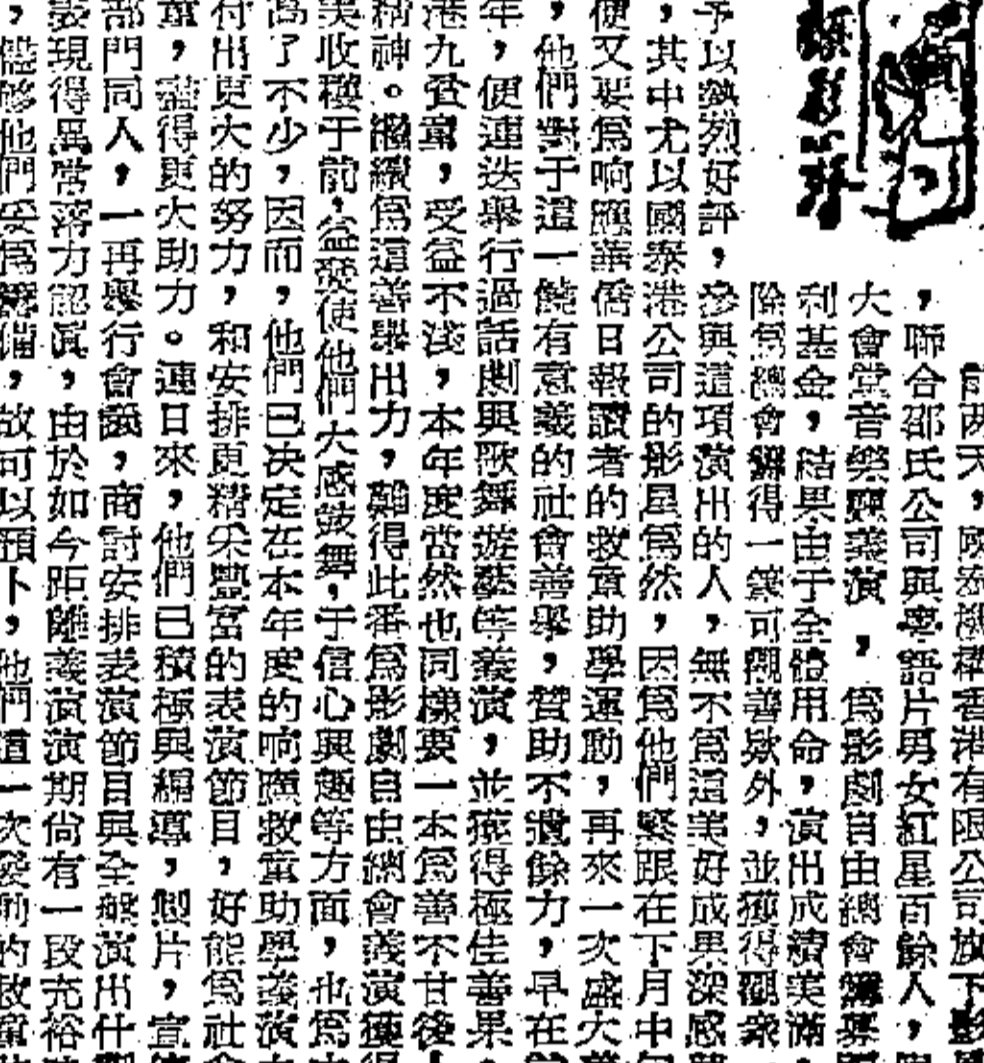 前两天，國泰機構香港有限公司放下
，聯合邵氏公司與粵語片男女紅星百餘人，
大會堂音樂廳義演，爲影劇自由總會籌募
利基金，結果由于全體用命，演出成績美滿
除爲總會籌得一筆可觀善欵外，並獲得觀衆
予以熱烈好評，參與這項演出的人，無不爲這美好成果深感
，其中尤以國泰港公司的影星爲然，因爲他們緊跟在下月中
便又要爲响應華僑日報讀者的救童助學運動，再來一次盛大
，他們對于這一饒有意義的社會善舉，贊助不遺餘力，早在
年，便連迭舉行過話劇與歌舞遊藝等義演，並獲得極佳善果。
港九貧童，受益不淺，本年度當然也同樣要一本爲善不甘後
精神。繼續爲這善舉出力，難得此番爲影劇自由總會義演獲得
美收穫于前，益發使他們大感鼓舞，于信心興趣等方面，也爲
高了不少，因而，他們已决定在本年度的响應救童助學義演
付出更大的努力，和安排更精采豐富的表演節目，好能爲社會
童，盡得更大助力。連日來，他們已積極與編導，製片，宣
部門同人，一再舉行會議，商討安排表演節目與全般演出什
表現得異常落力認眞，由於如今距離義演演期尙有一段充裕
，儘够他們妥爲籌備，故可以預卜，他們這一次發動的救童